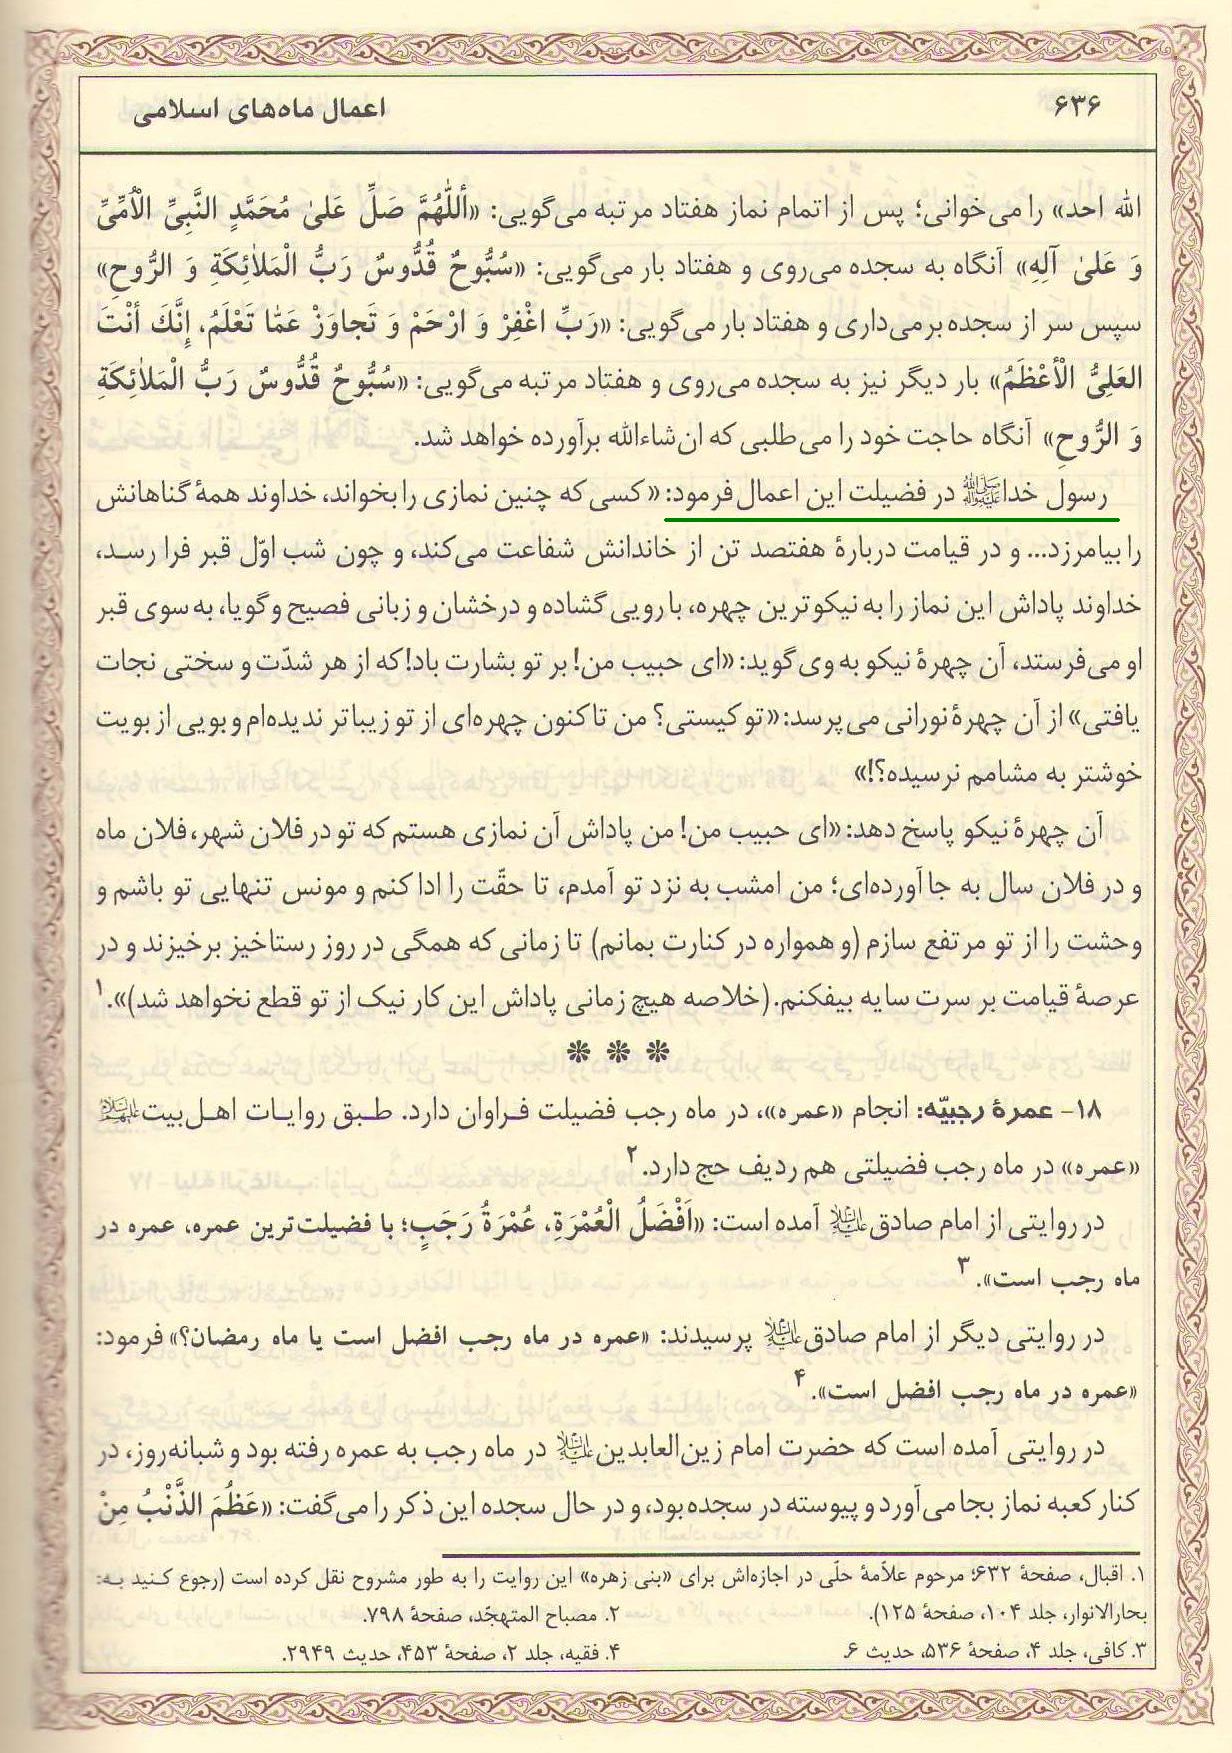 ۶۳۶
اعمال ماه‌های اسلامی
الله احد» را می‌خوانی؛ پس از اتمام نماز هفتاد مرتبه می‌گویی: «أَللّٰهُمَّ صَلِّ عَلیٰ مُحَمَّدٍ النَّبِیِّ الْأُمِّیِّ
وَ عَلیٰ آلِهِ» آنگاه به سجده می‌روی و هفتاد بار می‌گویی: «سُبُّوحٌ قُدُّوسٌ رَبُّ الْمَلاٰئِکَةِ وَ الرُّوحِ»
سپس سر از سجده برمی‌داری و هفتاد بار می‌گویی: «رَبِّ اغْفِرْ وَ ارْحَمْ وَ تَجاوَزْ عَمّا تَعْلَمُ، إِنَّكَ أَنْتَ
العَلِیُّ الْأَعْظَمُ» بار دیگر نیز به سجده می‌روی و هفتاد مرتبه می‌گویی: «سُبُّوحٌ قُدُّوسٌ رَبُّ الْمَلاٰئِکَةِ
وَ الرُّوحِ» آنگاه حاجت خود را می‌طلبی که ان‌شاءالله برآورده خواهد شد.
رسول خدا ﷺ در فضیلت این اعمال فرمود: «کسی که چنین نمازی را بخواند، خداوند همهٔ گناهانش
را بیامرزد... و در قیامت دربارهٔ هفتصد تن از خاندانش شفاعت می‌کند، و چون شب اوّل قبر فرا رسد،
خداوند پاداش این نماز را به نیکوترین چهره، با رویی گشاده و درخشان و زبانی فصیح و گویا، به سوی قبر
او می‌فرستد، آن چهرهٔ نیکو به وی گوید: «ای حبیب من! بر تو بشارت باد! که از هر شدّت و سختی نجات
یافتی» از آن چهرهٔ نورانی می‌پرسد: «تو کیستی؟ من تاکنون چهره‌ای از تو زیباتر ندیده‌ام و بویی از بویت
خوشتر به مشامم نرسیده؟!»
آن چهرهٔ نیکو پاسخ دهد: «ای حبیب من! من پاداش آن نمازی هستم که تو در فلان شهر، فلان ماه
و در فلان سال به جا آورده‌ای؛ من امشب به نزد تو آمدم، تا حقّت را ادا کنم و مونس تنهایی تو باشم و
وحشت را از تو مرتفع سازم (و همواره در کنارت بمانم) تا زمانی که همگی در روز رستاخیز برخیزند و در
عرصهٔ قیامت بر سرت سایه بیفکنم. (خلاصه هیچ زمانی پاداش این کار نیک از تو قطع نخواهد شد)».۱
* * *
۱۸- عمرهٔ رجبیّه: انجام «عمره»، در ماه رجب فضیلت فراوان دارد. طبق روایات اهل‌بیت علیهم‌السلام
«عمره» در ماه رجب فضیلتی هم ردیف حج دارد.۲
در روایتی از امام صادق علیه‌السلام آمده است: «اَفْضَلُ الْعُمْرَةِ، عُمْرَةُ رَجَبٍ؛ با فضیلت‌ترین عمره، عمره در
ماه رجب است».۳
در روایتی دیگر از امام صادق علیه‌السلام پرسیدند: «عمره در ماه رجب افضل است یا ماه رمضان؟» فرمود:
«عمره در ماه رجب افضل است».۴
در روایتی آمده است که حضرت امام زین‌العابدین علیه‌السلام در ماه رجب به عمره رفته بود و شبانه‌روز، در
کنار کعبه نماز بجا می‌آورد و پیوسته در سجده بود، و در حال سجده این ذکر را می‌گفت: «عَظُمَ الذَّنْبُ مِنْ
۱. اقبال، صفحهٔ ۶۳۲؛ مرحوم علاّمهٔ حلّی در اجازه‌اش برای «بنی زهره» این روایت را به طور مشروح نقل کرده است (رجوع کنید به:
بحارالانوار، جلد ۱۰۴، صفحهٔ ۱۲۵). ۲. مصباح المتهجّد، صفحهٔ ۷۹۸.
۳. کافی، جلد ۴، صفحهٔ ۵۳۶، حدیث ۶. ۴. فقیه، جلد ۲، صفحهٔ ۴۵۳، حدیث ۲۹۴۹.